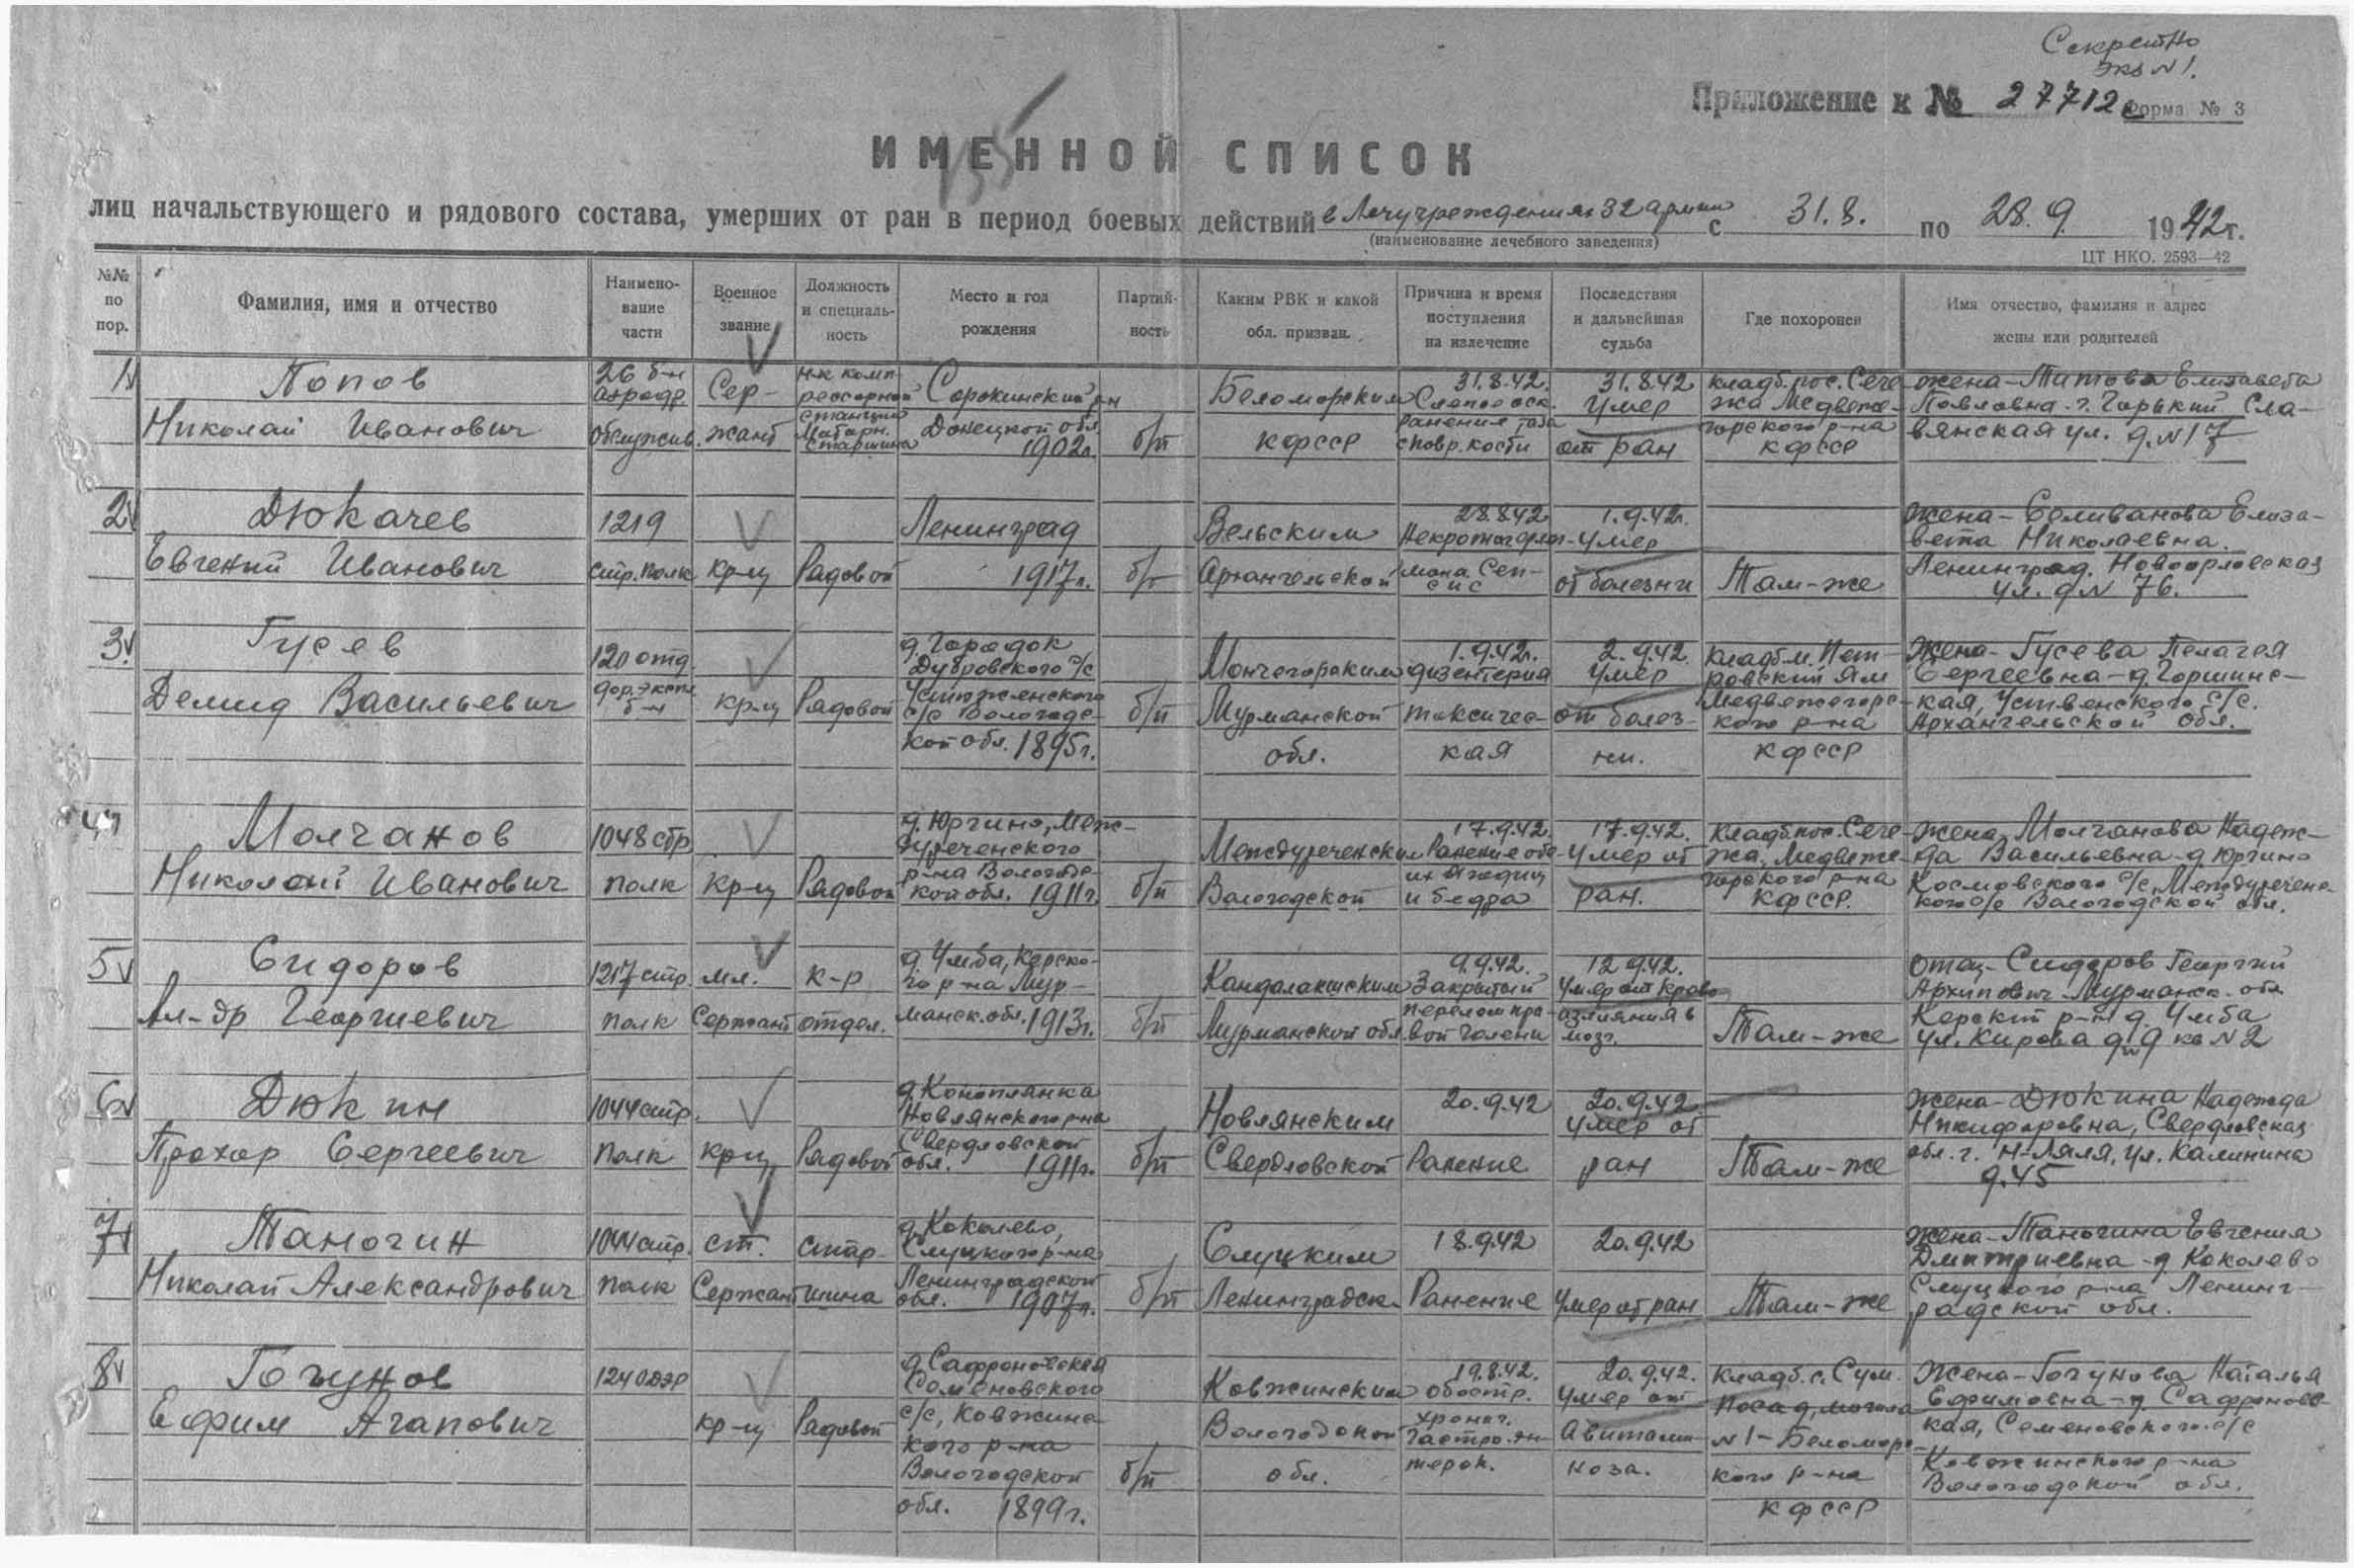 Секретно
экз N 1.
Приложение к № 27712с Форма № 3
155
ИМЕННОЙ СПИСОК
лиц начальствующего и рядового состава, умерших от ран в период боевых действий в Лечучреждениях 32 армии с 31.8. по 28.9. 1942 г.
(наименование лечебного заведения)
ЦТ НКО. 2593—42
№№ по пор.
Фамилия, имя и отчество
Наимено-
вание
части
Военное
звание
Должность
и специаль-
ность
Место и год
рождения
Партий-
ность
Каким РВК и какой
обл. призван.
Причина и время
поступления
на излечение
Последствия
и дальнейшая
судьба
Где похоронен
Имя отчество, фамилия и адрес
жены или родителей
1
Попов
Николай Иванович
26 б-н
аэродр.
обслужив.
Сер-
жант
н-к комп-
рессорной
станции
старшина
Сорокинский р-н
Донецкой обл.
1902г.
б/п
Беломорским
КФССР
31.8.42.
Слепое оск.
ранение таза
с повр. кости
31.8.42
умер
от ран
кладб. пос. Сеге-
жа Медвеже-
горского р-на
КФССР
жена - Титова Елизавета
Павловна. г. Горький Сла-
вянская ул. д. N 17
2
Дюкачев
Евгений Иванович
1219
стр. полк
кр-ц
Рядовой
Ленинград
1917г.
б/п
Вельским
Архангельской
28.8.42
Сеп-
сис
1.9.42г.
умер
от болезни
Там-же
жена - Селиванова Елиза-
вета Николаевна.
Ленинград. Новоорловская
ул. д N 76.
3
Гусев
Демид Васильевич
120 отд.
дор. экспл.
б-н
кр-ц
Рядовой
д. Городок
Дубровского с/с
Устюженского
с/с Вологодс-
кой обл. 1895г.
б/п
Мончегорским
Мурманской
обл.
1.9.42г.
дизентерия
токсичес-
кая
2.9.42
умер
от болез-
ни.
Кладб. м. Пет-
ровский Ям
Медвежегорс-
кого р-на
КФССР
Жена - Гусева Пелагея
Сергеевна - д. Горшинс-
кая, Устьвенского с/с.
Архангельской обл.
4
Молчанов
Николай Иванович
1048 стр
полк
кр-ц
Рядовой
д. Юркино, Меж-
дуреченского
р-на Вологодс-
кой обл. 1911г.
б/п
Междуреченским
Вологодской
17.9.42.
Ранение обе-
их ягодиц
и бедра
17.9.42.
умер от
ран.
кладб. пос. Сеге-
жа, Медвеже-
горского р-на
КФССР.
жена Молчанова Надеж-
да Васильевна - д Юркино
Космовского с/с, Междуреченс-
кого с/с Вологодской обл.
5
Сидоров
Ал-др Георгиевич
1217 стр.
полк
мл.
Сержант
к-р
отдел.
д. Умба, Терско-
го р-на Мур-
манск. обл. 1913г.
б/п
Кандалакшским
Мурманской обл.
9.9.42.
Закрытый
перелом пра-
вой голени
12.9.42.
умер от крово-
излияния в
мозг.
Там-же
отец - Сидоров Георгий
Архипович Мурманск. обл
Терский р-н д. Умба
ул. Кирова д N 9 кв N 2
6
Дюкин
Прохор Сергеевич
1044 стр.
полк
кр-ц
Рядовой
д. Коноплянка
Новлянского р-на
Свердловской
обл. 1911г.
б/п
Новлянским
Свердловской
20.9.42
Ранение
20.9.42.
умер от
ран
Там-же
жена - Дюкина Надежда
Никифоровна, Свердловская
обл. г. Н-Ляля, ул. Калинина
д. 45
7
Таночин
Николай Александрович
1044 стр.
полк
ст.
Сержант
стар-
шина
д. Коколево,
Слуцкого р-на
Ленинградской
обл. 1907г.
б/п
Слуцким
Ленинградск.
18.9.42
Ранение
20.9.42
умер от ран
Там-же
жена - Таночина Евгения
Дмитриевна - д Коколево
Слуцкого р-на Ленинг-
радской обл.
8
Гочунов
Ефрим Агапович
124 ОДЭР
кр-ц
Рядовой
д. Сафроновская
Семеновского
с/с, Ковжинс-
кого р-на
Вологодской
обл. 1899г.
б/п
Ковжинским
Вологодской
обл.
19.8.42.
обостр.
хронич.
гастро эн-
терок.
20.9.42.
умер от
Авитами-
ноза.
кладб. с. Сум.
Посад, могила
N 1 - Беломорс-
кого р-на
КФССР
Жена - Гочунова Наталья
Ефимовна - д. Сафроновс-
кая, Семеновского с/с
Ковжинского р-на
Вологодской обл.